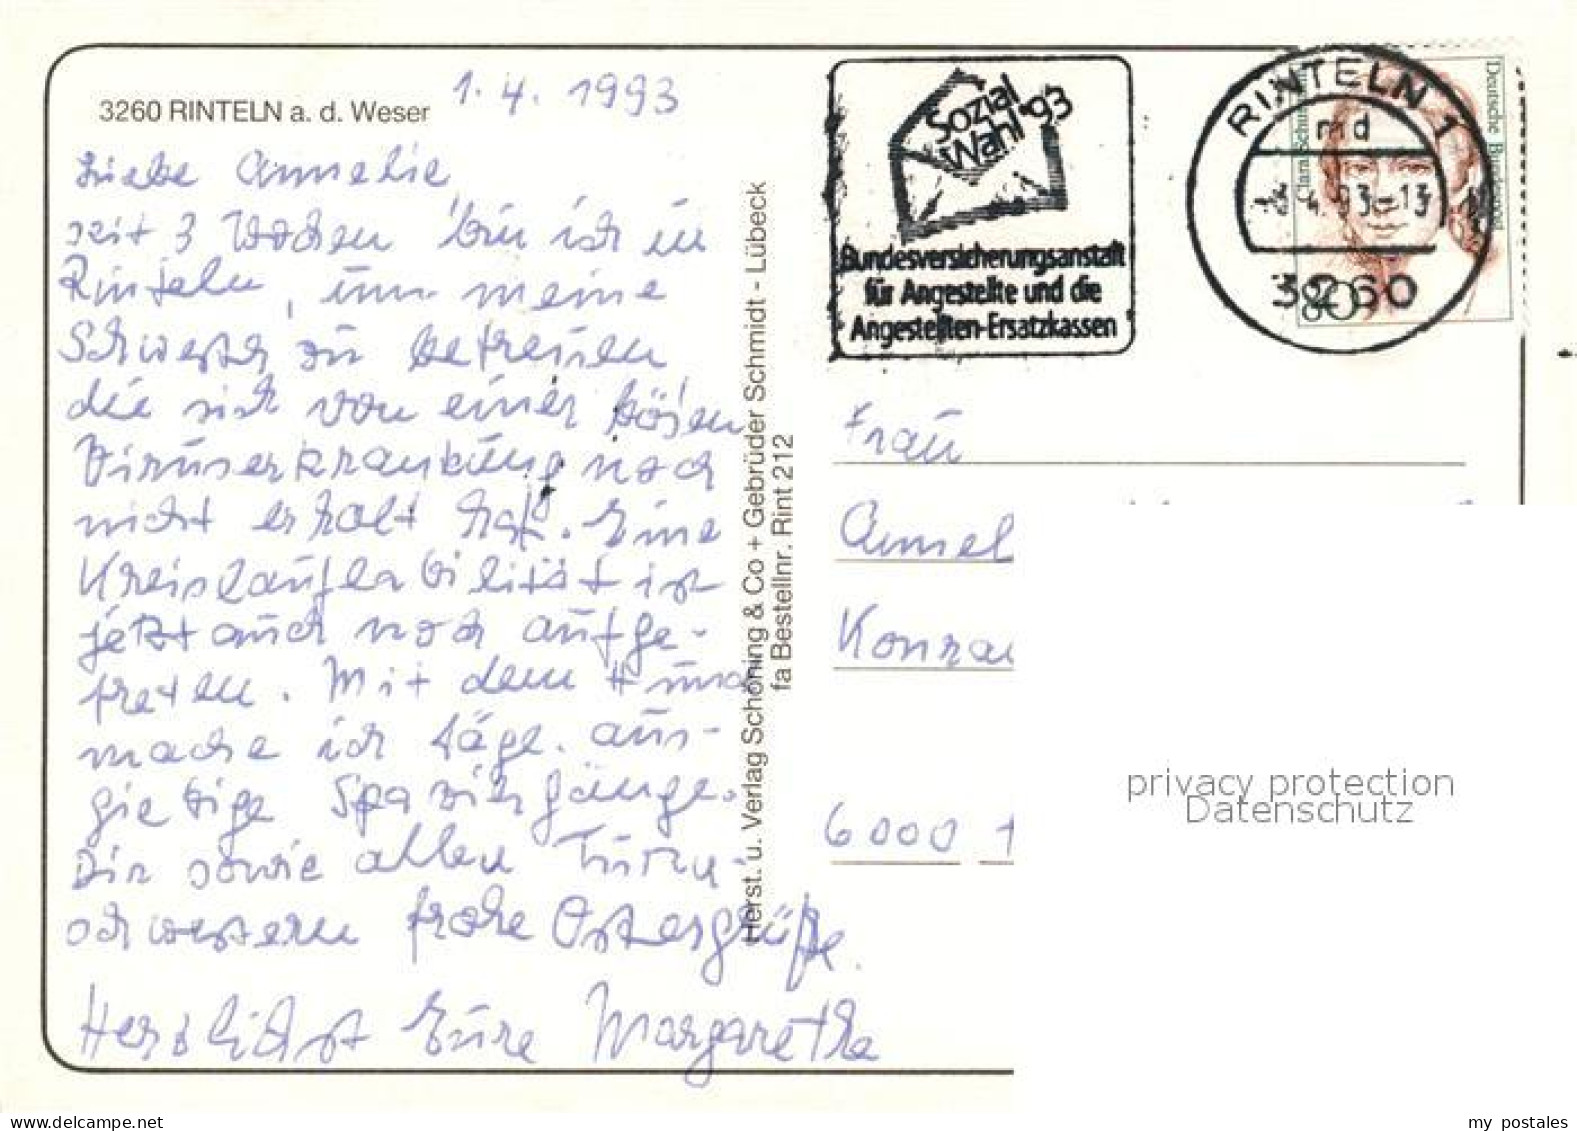 3260 RINTELN a. d. Weser
1. 4. 1993
Liebe Annelie,
seit 3 Wochen bin ich in
Rinteln, um meine
Schwester zu betreuen
die sich von einer bösen
Viruserkrankung noch
nicht erholt hat. Eine
Kreislauflabilität ist
jetzt auch noch aufge-
treten. Mit dem Hund
mache ich täge. aus-
giebige Spaziergänge.
Dir sowie allen Turn-
schwestern frohe Ostergrüße.
Herzlichst Eure Margarethe
Herst. u. Verlag Schöning & Co + Gebrüder Schmidt - Lübeck
fa Bestellnr. Rint 212
Sozial
Wahl '93
Bundesversicherungsanstalt
für Angestellte und die
Angestellten-Ersatzkassen
RINTELN 1
md
4.93-13
3260
Deutsche Bundespost
Clara Schu
80
Frau
Annel
Konra
6000
privacy protection
Datenschutz
my postales